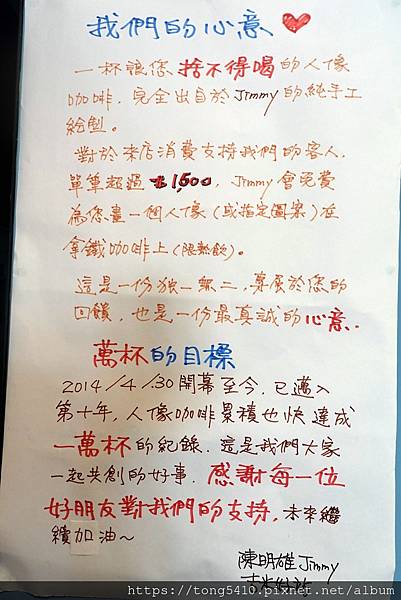 我們的心意
一杯讓您捨不得喝的人像
咖啡．完全出自於Jimmy的純手工
繪製。
對於來店消費支持我們的客人．
單筆超過$1,500，Jimmy會免費
為您畫一個人像(或指定圖案)在
拿鐵咖啡上(限熱飲)。
這是一份獨一無二，專屬於您的
回饋，也是一份最真誠的心意．
萬杯的目標
2014/4/30開幕至今，已邁入
第十年，人像咖啡累積也快達成
一萬杯的紀錄．這是我們大家
一起共創的好事．感謝每一位
好朋友對我們的支持，未來繼
續加油~
陳明雄Jimmy
https://tong5410.pixnet.net/album